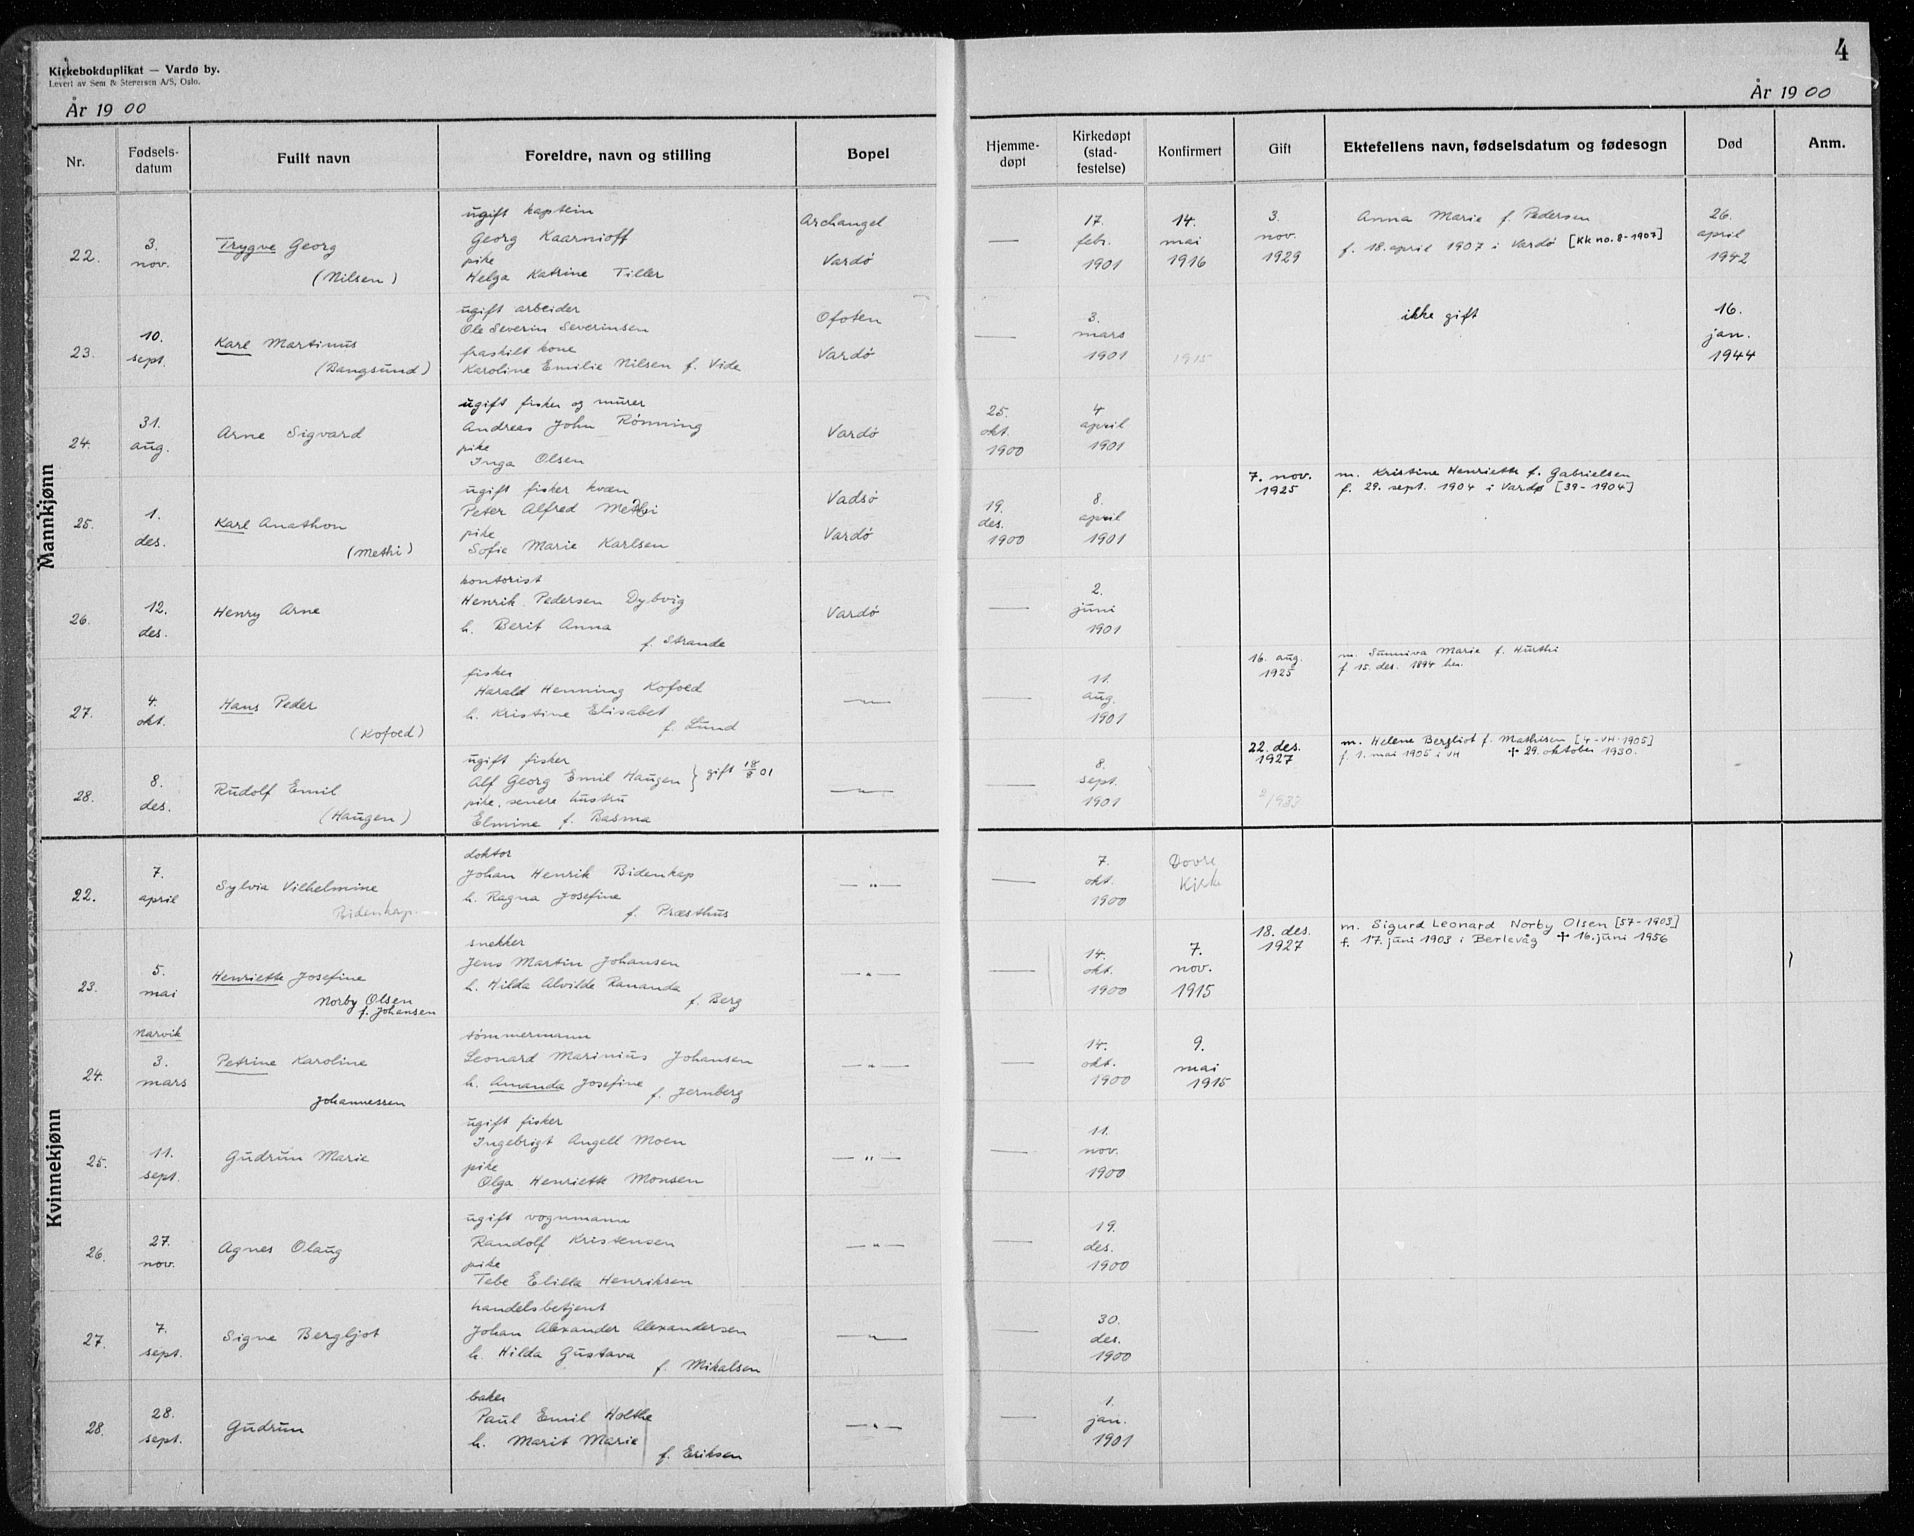 4
Kirkebokduplikat — Vardø by.
Levert av Sem & Stenersen A/S, Oslo.
År 19 00
År 19 00
Nr. Fødsels-datum Fullt navn Foreldre, navn og stilling Bopel Hjemme-døpt Kirkedøpt (stad-festelse) Konfirmert Gift Ektefellens navn, fødselsdatum og fødesogn Død Anm.
Mannkjønn
22. 3. nov. Trygve Georg (Nilsen)
ugift kaptein
Georg Kaarnioff
pike
Helga Katrine Tiller
Archangel
Vardø
— 17. febr. 1901 14. mai 1916 3. nov. 1929
Anna Marie f. Pedersen
f. 18. april 1907 i Vardø [Kk no. 8-1907]
26. april 1942
23. 10. sept. Karl Martinus (Bangsund)
ugift arbeider
Ole Severin Severinsen
fraskilt kone
Karoline Emilie Nilsen f. Vide
Ofoten
Vardø
— 3. mars 1901 1915
ikke gift
16. jan. 1944
24. 31. aug. Arne Sigvard
ugift fisker og murer
Andreas John Rønning
pike
Inga Olsen
Vardø
25. okt. 1900 4 april 1901
25. 1. des. Karl Anathon (Methi)
ugift fisker kvæn
Peter Alfred Methi
pike
Sofie Marie Karlsen
Vadsø
Vardø
19. des. 1900 8. april 1901 7. nov. 1925
m. Kristine Henriette f. Gabrielsen
f. 29. sept. 1904 i Vardø [39-1904]
26. 12. des. Henry Arne
kontorist
Henrik Pedersen Dybvig
h. Berit Anna
f. Strande
Vardø
— 2. juni 1901
27. 4. okt. Hans Peder (Kofoed)
fisker
Harald Henning Kofoed
h. Kristine Elisabet
f. Lund
—"—
— 11. aug. 1901 16. aug. 1925
m. Sunniva Marie f. Hurthi
f. 15. des. 1894 her.
28. 8. des. Rudolf Emil (Haugen)
ugift fisker
Alf Georg Emil Haugen } gift 18/8 01
pike, senere hustru
Elmine f. Basma
—"—
— 8. sept. 1901 22. des. 1927
m. Helene Bergliot f. Mathisen [4-VH-1905]
f. 1. mai 1905 i VH ✝ 29. oktober 1930.
/1933
Kvinnekjønn
22. 7. april Sylvia Vilhelmine Bidenkap
doktor
Johan Henrik Bidenkap
h. Ragna Josefine
f. Præsthus
—"—
— 7. okt. 1900 Dovre Kirke
23. 5. mai Henriette Josefine
Norby Olsen
f. Johansen
snekker
Jens Martin Johansen
h. Hilda Alvilde Rananda
f. Berg
—"—
— 14. okt. 1900 7. nov. 1915 18. des. 1927
m. Sigurd Leonard Norby Olsen [57-1903]
f. 17. juni 1903 i Berlevåg ✝ 16. juni 1956
24. Narvik 3. mars Petrine Karoline Johannessen
tømmermann
Leonard Marinius Johansen
h. Amanda Josefine
f. Jernberg
—"—
— 14. okt. 1900 9. mai 1915
25. 11. sept. Gudrun Marie
ugift fisker
Ingebrigt Angell Moen
pike
Olga Henriette Monsen
—"—
— 11. nov. 1900
26. 27. nov. Agnes Olaug
ugift vognmann
Randolf Kristensen
pike
Tebe Elilla Henriksen
—"—
— 19. des. 1900
27. 7. sept. Signe Bergljot
handelsbetjent
Johan Alexander Alexandersen
h. Hilda Gustava
f. Mikalsen
—"—
— 30. des. 1900
28. 28. sept. Gudrun
baker
Paul Emil Holthe
h. Marit Marie
f. Eriksen
—"—
— 1. jan. 1901